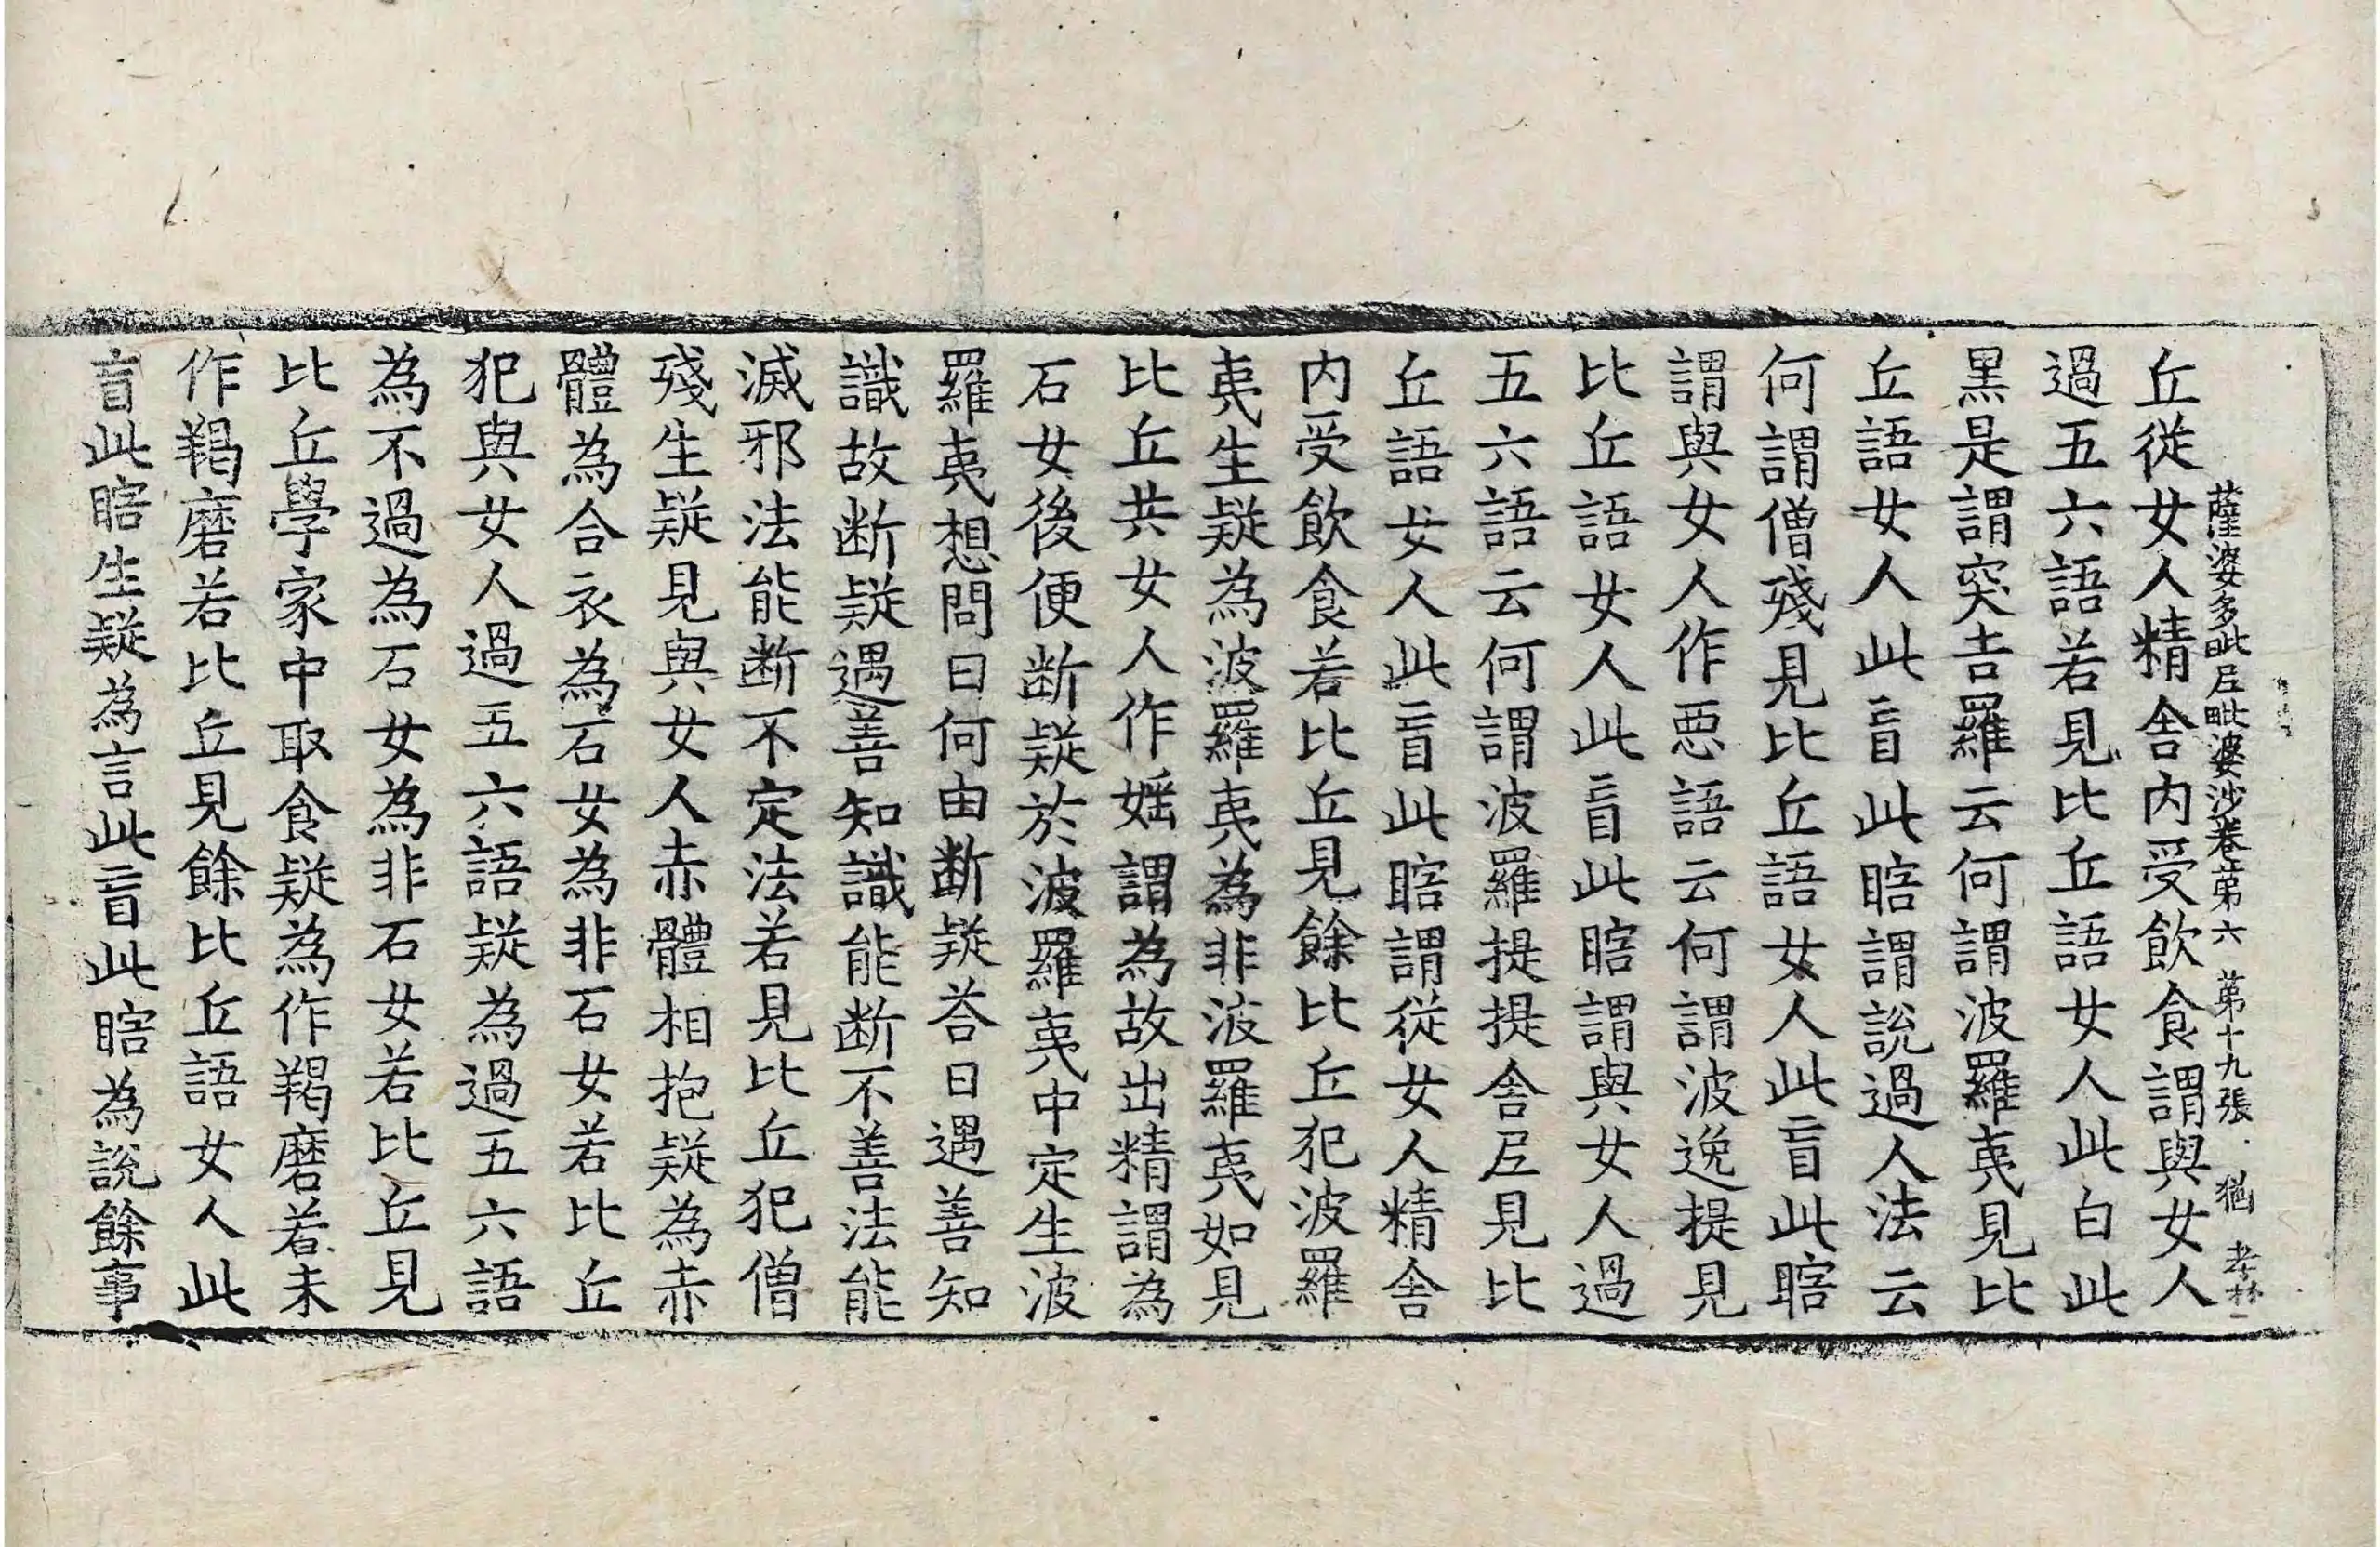 薩婆多毗尼毗婆沙卷第六　第十九張　猶　孝林二
丘從女人精舍内受飲食謂與女人
過五六語若見比丘語女人此白此
黑是謂突吉羅云何謂波羅夷見比
丘語女人此盲此瞎謂說過人法云
何謂僧殘見比丘語女人此盲此瞎
謂與女人作惡語云何謂波逸提見
比丘語女人此盲此瞎謂與女人過
五六語云何謂波羅提提舍尼見比
丘語女人此盲此瞎謂從女人精舍
内受飲食若比丘見餘比丘犯波羅
夷生疑為波羅夷為非波羅夷如見
比丘共女人作婬謂為故出精謂為
石女後便断疑於波羅夷中定生波
羅夷想問曰何由断疑荅曰遇善知
識故断疑遇善知識能断不善法能
滅邪法能断不定法若見比丘犯僧
殘生疑見與女人赤體相抱疑為赤
體為合衣為石女為非石女若比丘
犯與女人過五六語疑為過五六語
為不過為石女為非石女若比丘見
比丘學家中取食疑為作羯磨若未
作羯磨若比丘見餘比丘語女人此
盲此瞎生疑為言此盲此瞎為說餘事